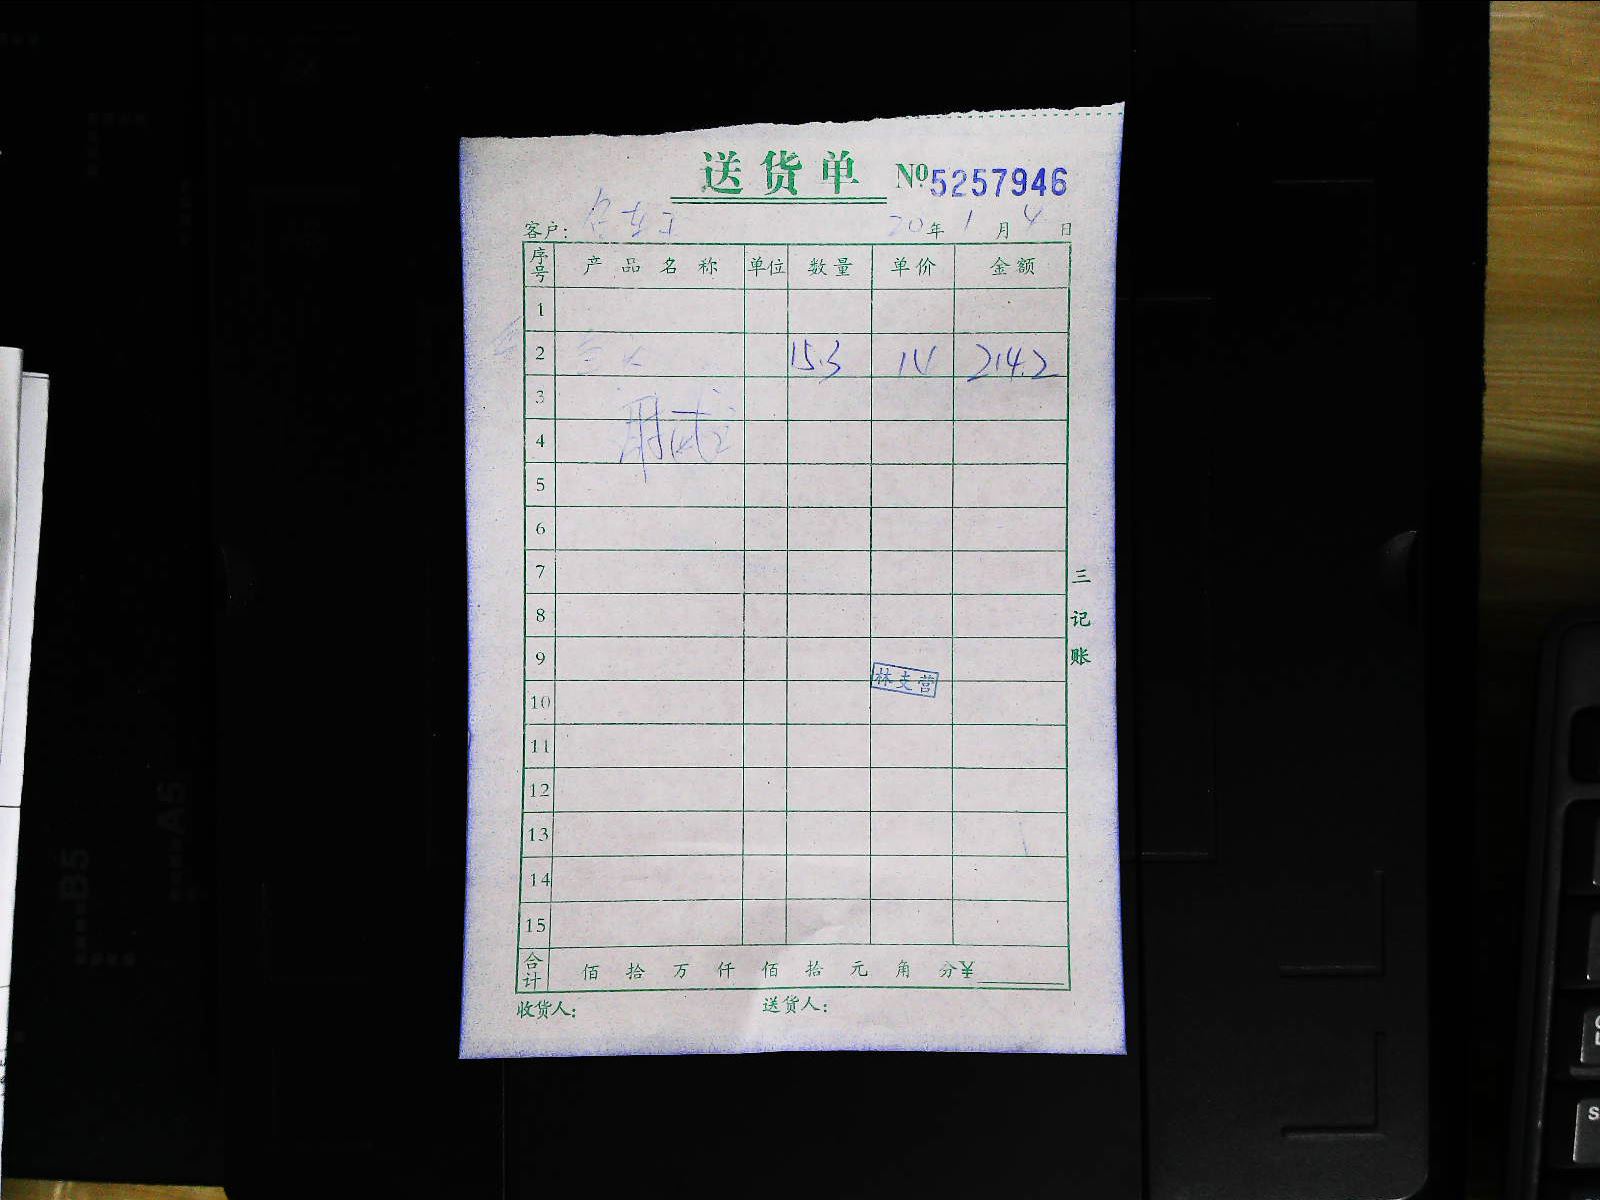 送货单 №5257946
客户: 20年1月4日
序号 产品名称 单位 数量 单价 金额
1
2 15.3 14 214.2
3
4
5
6
7
8
9
林支营
10
11
12
13
14
15
合计 佰 拾 万 仟 佰 拾 元 角 分¥
收货人: 送货人:
三记账
B5
A5